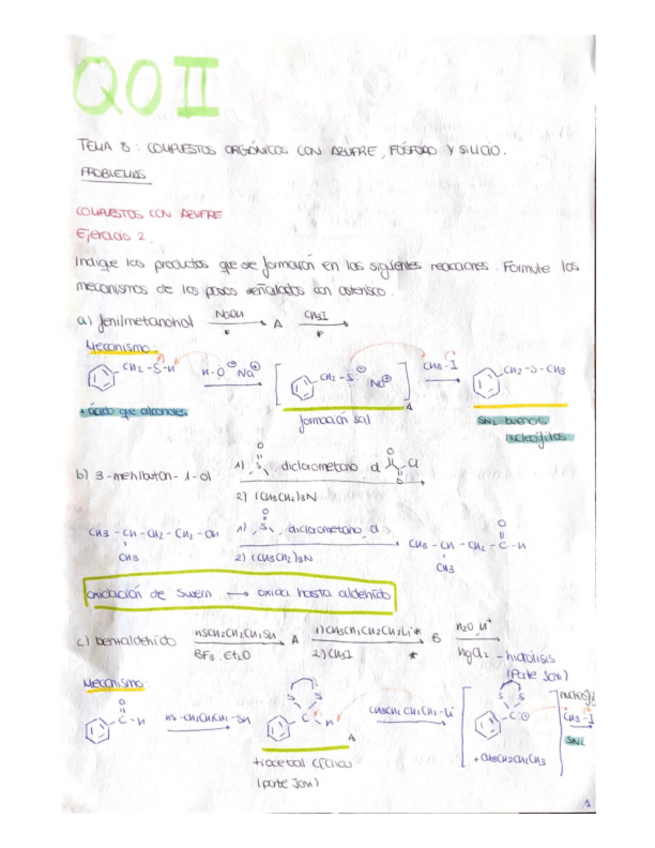 QO II
TEMA 8: COMPUESTOS ORGÁNICOS CON AZUFRE, FÓSFORO Y SILICIO.
PROBLEMAS
COMPUESTOS CON AZUFRE
Ejercicio 2.
Indique los productos que se formarán en las siguientes reacciones. Formule los
mecanismos de los pasos señalados con asterisco.
a) fenilmetanotiol NaOH * A CH3I *
Mecanismo:
CH2-S-H H-O⊖ Na⊕ [ CH2-S⊖ Na⊕ ] A CH3-I CH2-S-CH3
+ ácido que alcoholes
formación sal
SN2 buenos
nucleófilos
b) 3-metilbutan-1-ol 1) O S, diclorometano, Cl O O Cl
2) (CH3CH2)3N
CH3-CH-CH2-CH2-OH 1) O S, diclorometano, cl CH3-CH-CH2-C-H O
CH3 2) (CH3CH2)3N CH3
Oxidación de Swern → oxida hasta aldehído
c) benzaldehído HSCH2CH2CH2SH A 1) CH3CH2CH2CH2Li* B H2O H+
BF3.Et2O 2) CH3I * HgCl2 - hidrólisis
(Parte Javi)
Mecanismo:
O C-H HS-CH2CH2CH2-SH S S C H A CH3CH2CH2CH2-Li [ S S C⊖ + CH3CH2CH2CH3 ] CH3-I
SN2
tioacetal cíclico
(parte Javi)